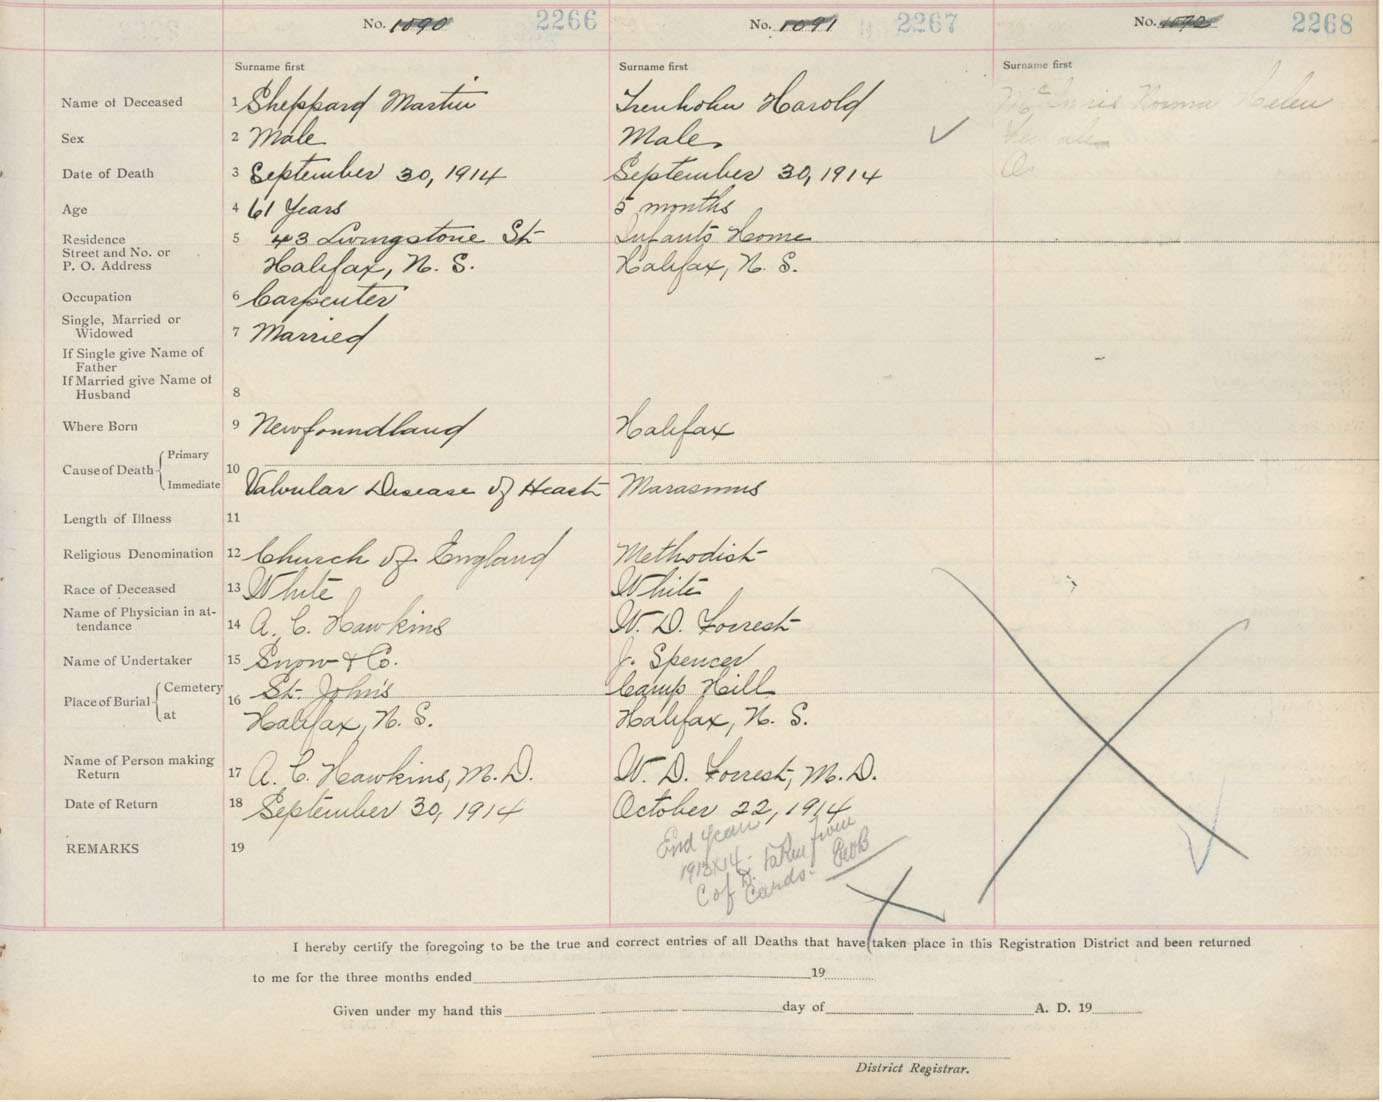 No. 1090 2266
No. 1091 2267
No. 1092 2268
Surname first
Surname first
Surname first
Name of Deceased 1 Sheppard Martin Trenholm Harold McInnis Norma Helen
Sex 2 Male Male Female
Date of Death 3 September 30, 1914 September 30, 1914 O
Age 4 61 Years 5 months
Residence 5 43 Livingstone St Infants Home
Street and No. or
P. O. Address Halifax, N. S. Halifax, N. S.
Occupation 6 Carpenter
Single, Married or
Widowed 7 Married
If Single give Name of
Father
If Married give Name of
Husband 8
Where Born 9 Newfoundland Halifax
Cause of Death Primary
Immediate 10 Valvular Disease of Heart Marasmus
Length of Illness 11
Religious Denomination 12 Church of England Methodist
Race of Deceased 13 White White
Name of Physician in at-
tendance 14 A. C. Hawkins W. D. Forrest
Name of Undertaker 15 Snow & Co. J. Spencer
Place of Burial Cemetery 16 St. John's Camp Hill
at Halifax, N. S. Halifax, N. S.
Name of Person making
Return 17 A. C. Hawkins, M. D. W. D. Forrest, M. D.
Date of Return 18 September 30, 1914 October 22, 1914
REMARKS 19
End Year
1913x14. Taken from
C of D. Cards.
I hereby certify the foregoing to be the true and correct entries of all Deaths that have taken place in this Registration District and been returned
to me for the three months ended 19
Given under my hand this day of A. D. 19
District Registrar.